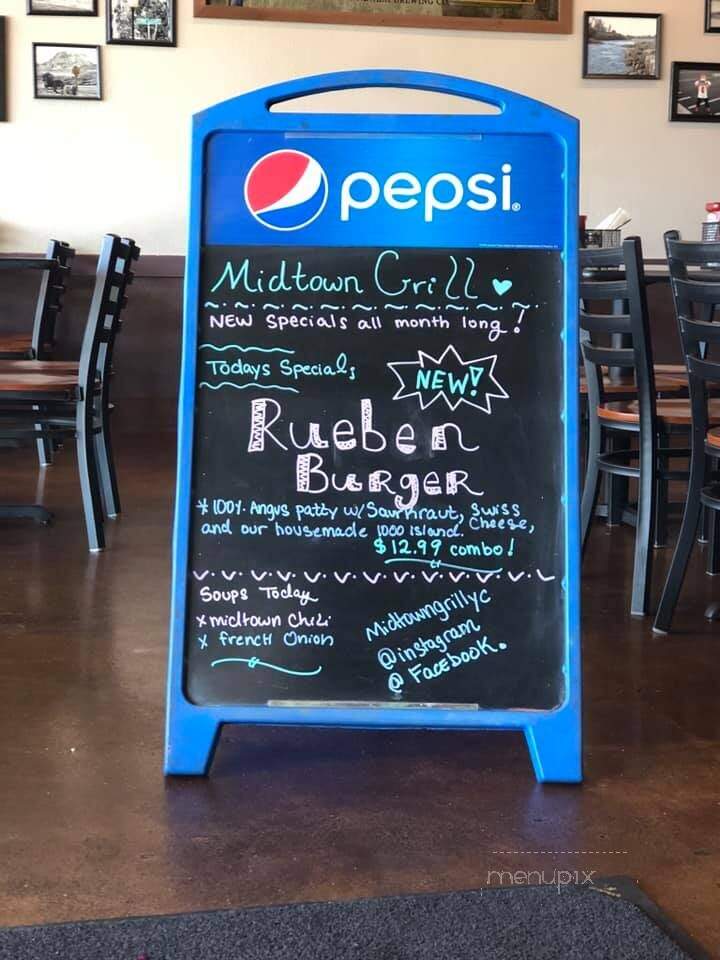 pepsi
Midtown Grill
NEW Specials all month long!
Todays Specials
NEW!
Rueben
Burger
* 100% Angus patty w/ Saurkraut, Swiss
and our housemade 1000 island. Cheese,
$12.99 combo!
Soups Today
x midtown Chili
x french Onion
Midtowngrillyc
@instagram
@ Facebook.
menupix